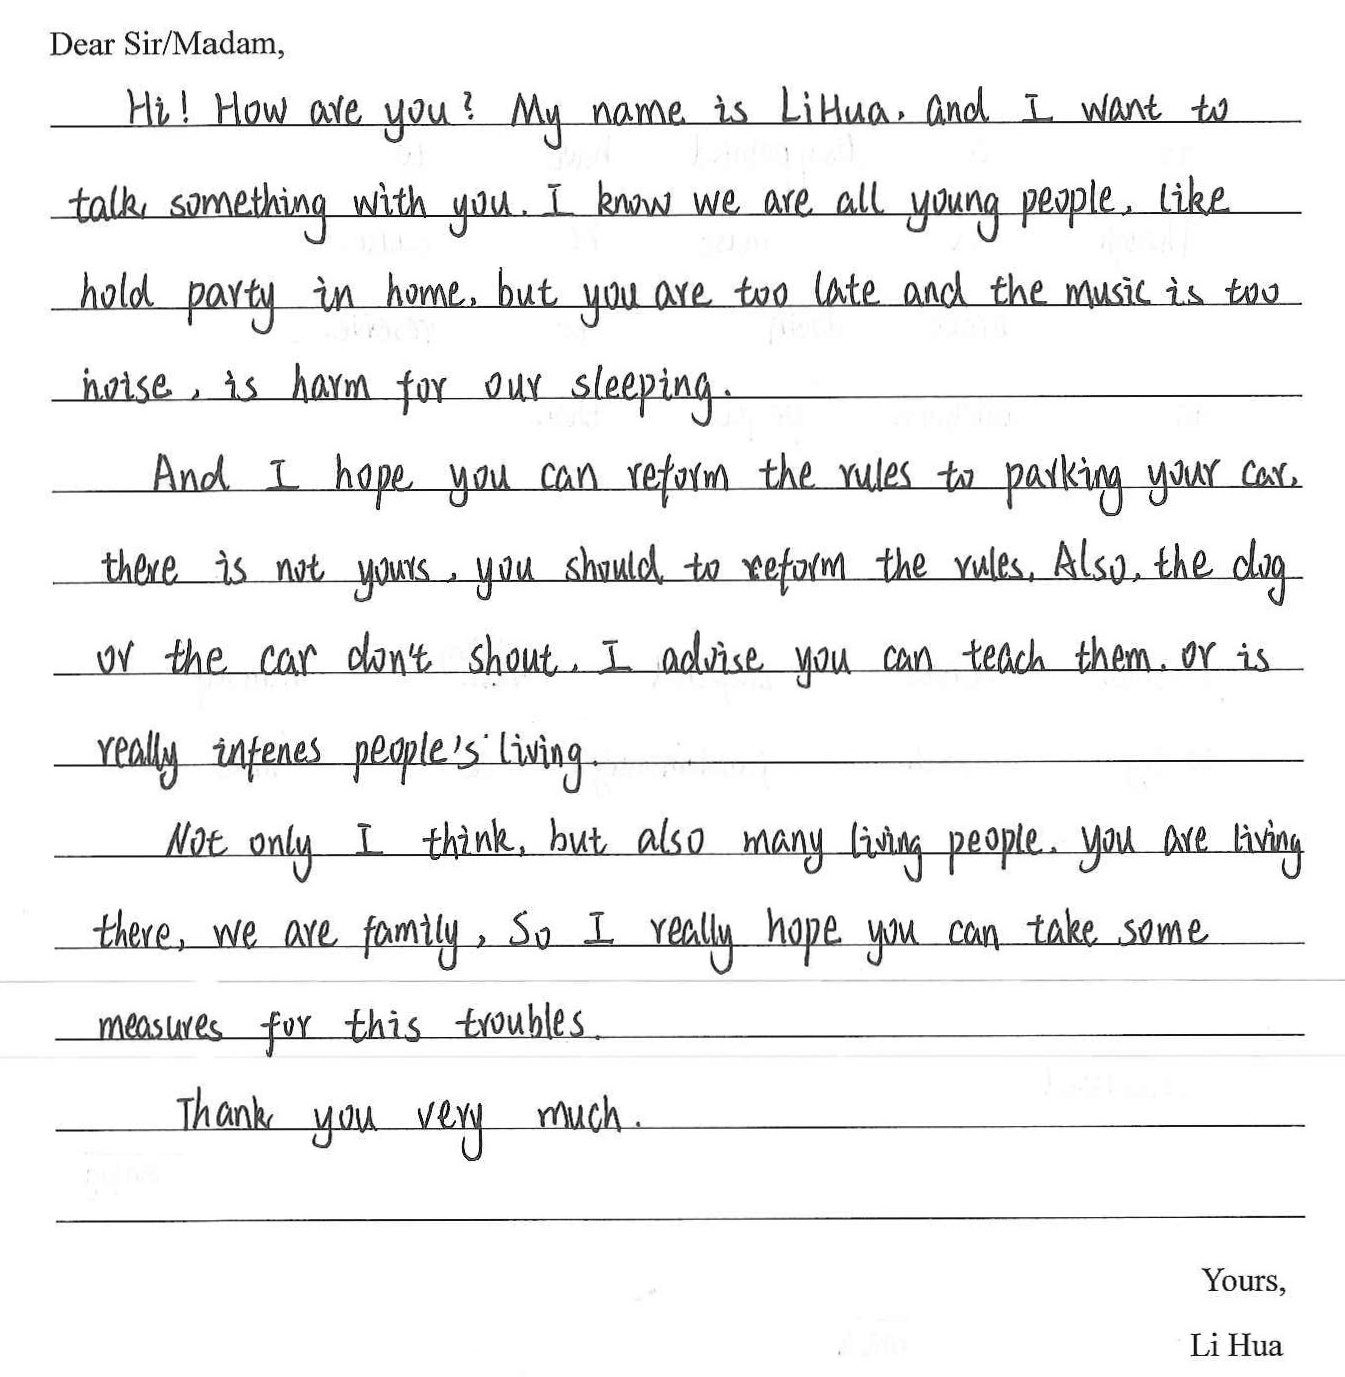 Dear Sir/Madam,
Hi! How are you? My name is LiHua. and I want to
talk something with you. I know we are all young people, like
hold party in home, but you are too late and the music is too
noise, is harm for our sleeping.
And I hope you can reform the rules to parking your car,
there is not yours, you should to reform the rules. Also, the dog
or the car don't shout. I advise you can teach them. or is
really infenes people's living.
Not only I think, but also many living people. you are living
there, we are family, So I really hope you can take some
measures for this troubles.
Thank you very much.
Yours,
Li Hua